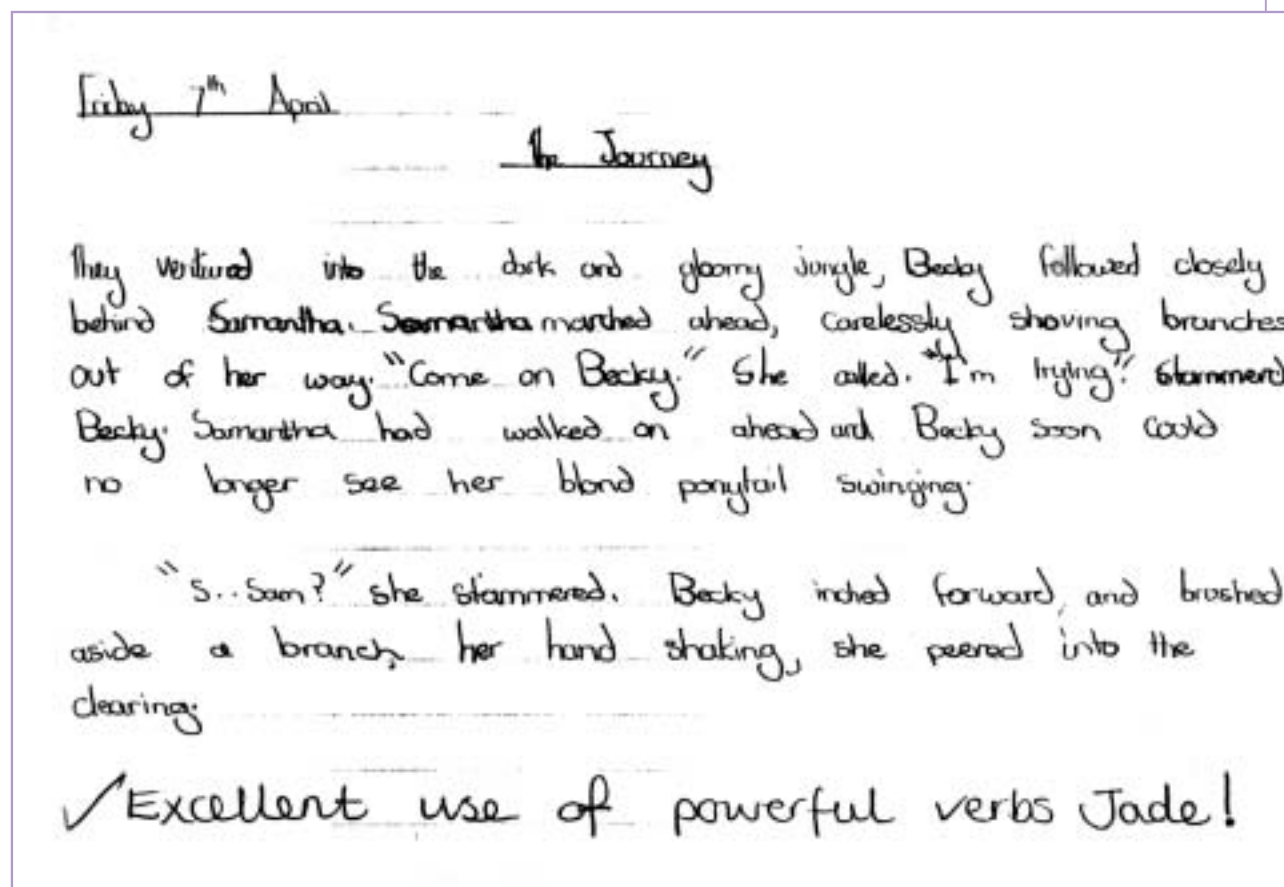 Friday 7th April
The Journey
They ventured into the dark and gloomy jungle, Becky followed closely
behind Samantha. Samantha marched ahead, carelessly shoving branches
out of her way. "Come on Becky." She called. "I'm trying". stammerd
Becky. Samantha had walked on ahead and Becky soon could
no longer see her blond ponytail swinging.
"S..Sam?" she stammered. Becky inched forward, and brushed
aside a branch, her hand shaking, she peered into the
clearing.
✓ Excellent use of powerful verbs Jade!